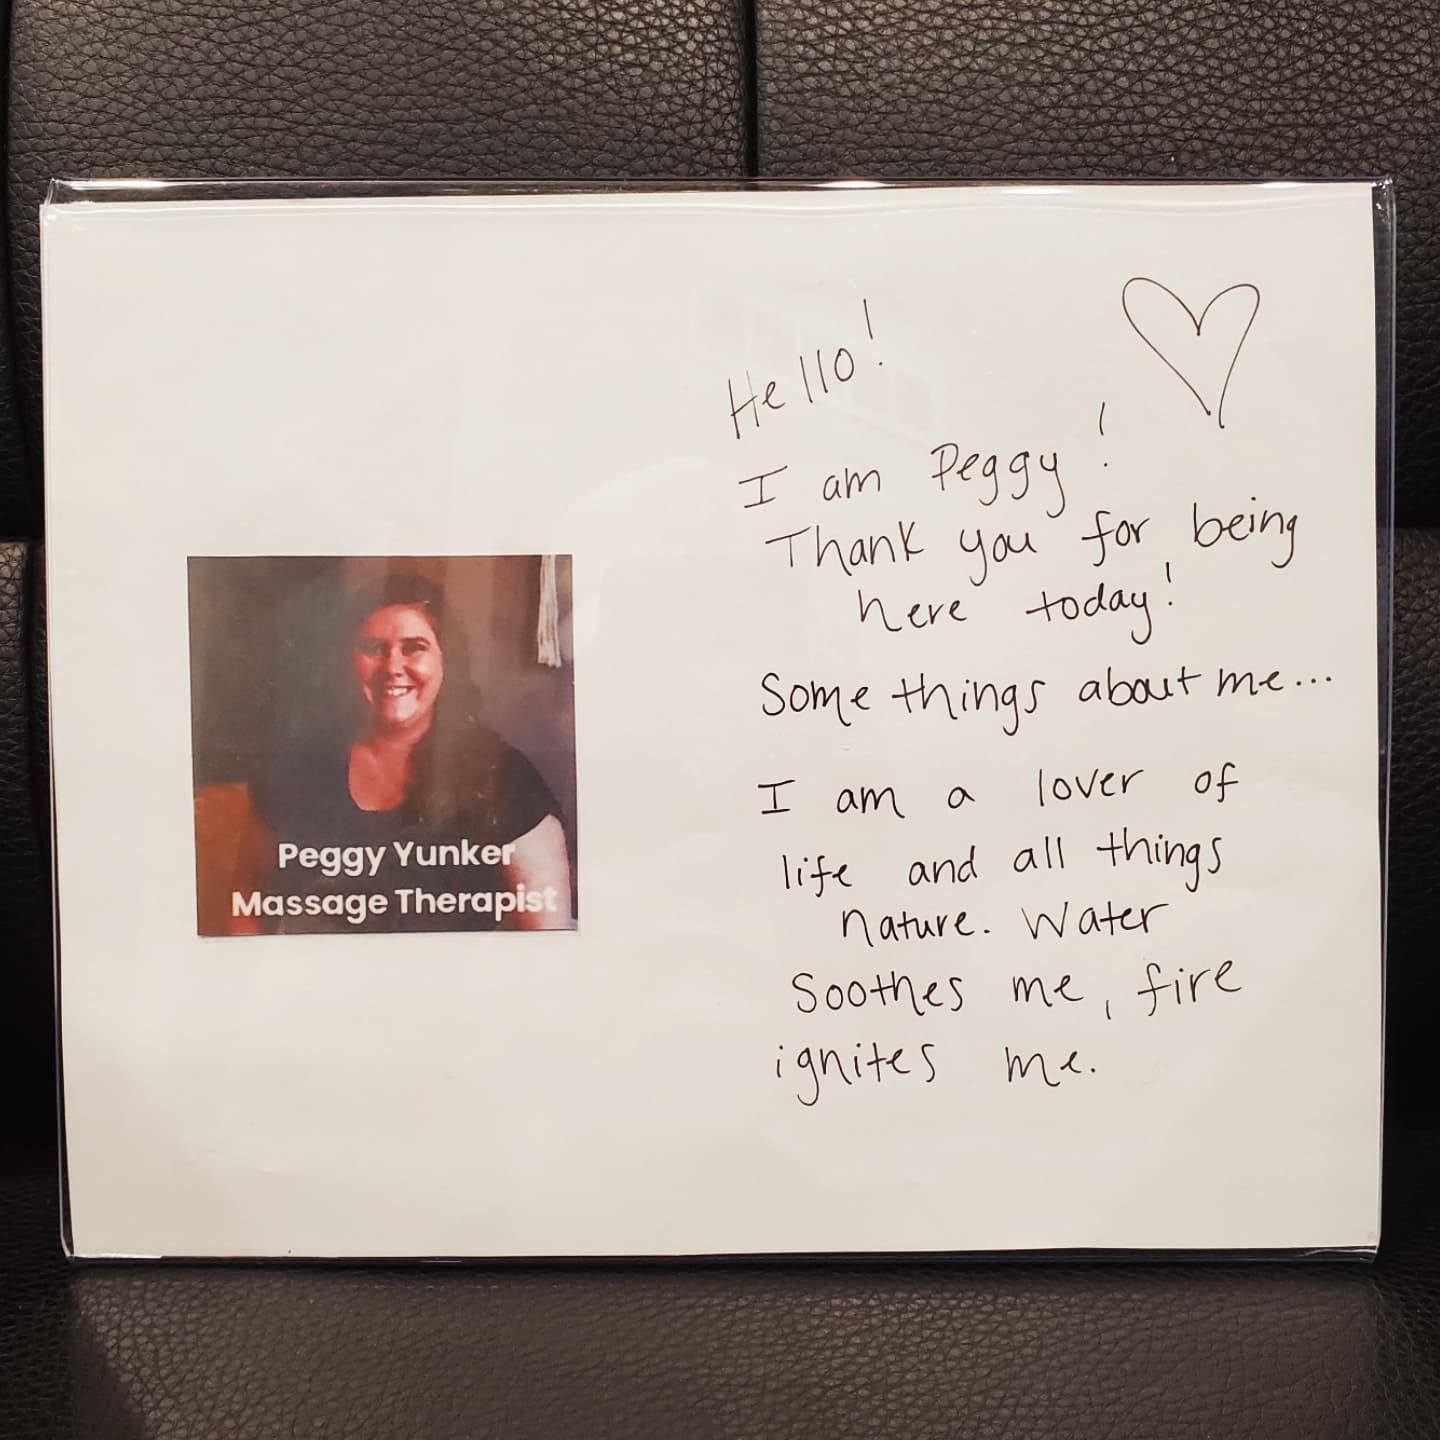 Hello!
I am Peggy!
Thank you for being
here today!
Some things about me...
I am a lover of
life and all things
nature. Water
Soothes me, fire
ignites me.
Peggy Yunker
Massage Therapist